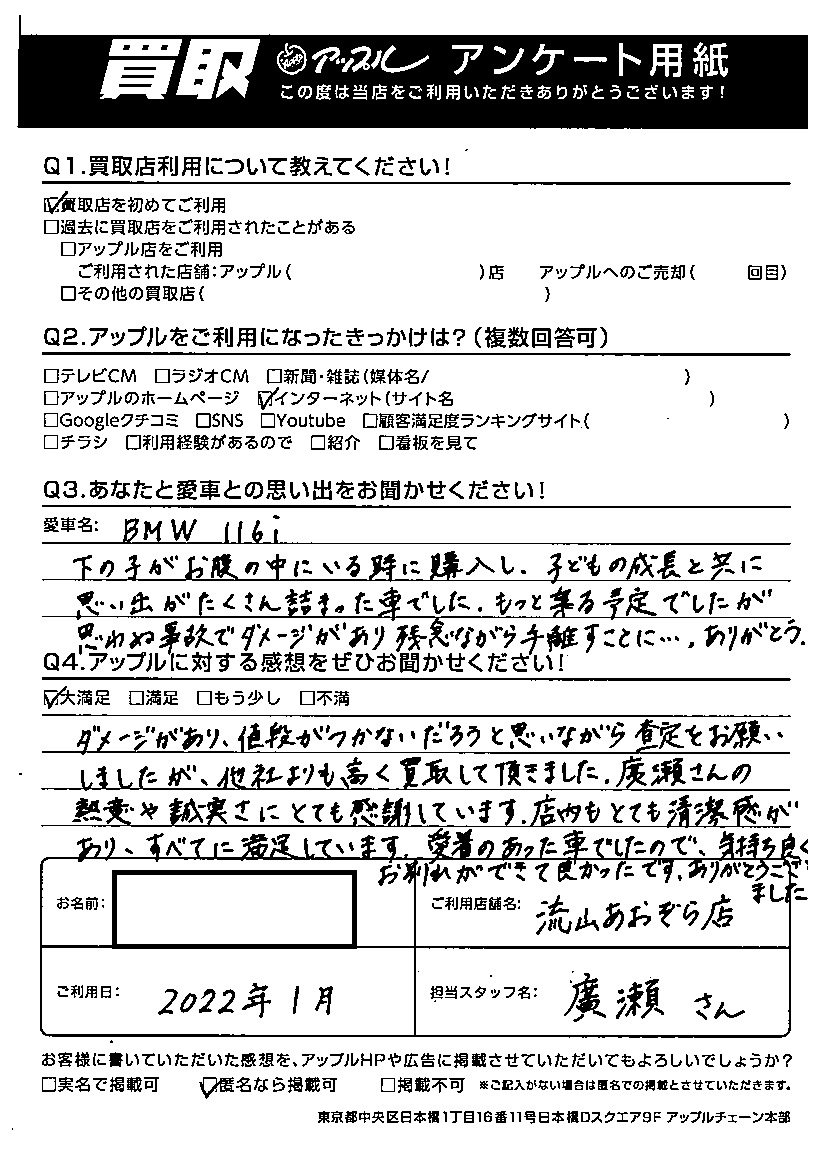 買取 アップル アンケート用紙
この度は当店をご利用いただきありがとうございます!
Q1.買取店利用について教えてください!
☑買取店を初めてご利用
□過去に買取店をご利用されたことがある
□アップル店をご利用
ご利用された店舗:アップル( )店 アップルへのご売却( 回目)
□その他の買取店( )
Q2.アップルをご利用になったきっかけは?(複数回答可)
□テレビCM □ラジオCM □新聞・雑誌(媒体名/ )
□アップルのホームページ ☑インターネット(サイト名 )
□Googleクチコミ □SNS □Youtube □顧客満足度ランキングサイト( )
□チラシ □利用経験があるので □紹介 □看板を見て
Q3.あなたと愛車との思い出をお聞かせください!
愛車名: BMW 116i
下の子がお腹の中にいる時に購入し、子どもの成長と共に
思い出がたくさん詰まった車でした。もっと乗る予定でしたが
思わぬ事故でダメージがあり残念ながら手離すことに…。ありがとう。
Q4.アップルに対する感想をぜひお聞かせください!
☑大満足 □満足 □もう少し □不満
ダメージがあり、値段がつかないだろうと思いながら査定をお願い
しましたが、他社よりも高く買取して頂きました。廣瀬さんの
熱意や誠実さにとても感謝しています。店内もとても清潔感が
あり、すべてに満足しています。愛着のあった車でしたので、気持ち良く
お別れができて良かったです。ありがとうござい
ました
お名前: ご利用店舗名: 流山あおぞら店
ご利用日: 2022年1月 担当スタッフ名: 廣瀬 さん
お客様に書いていただいた感想を、アップルHPや広告に掲載させていただいてもよろしいでしょうか?
□実名で掲載可 ☑匿名なら掲載可 □掲載不可 ※ご記入がない場合は匿名での掲載とさせていただきます。
東京都中央区日本橋1丁目16番11号日本橋Dスクエア9F アップルチェーン本部